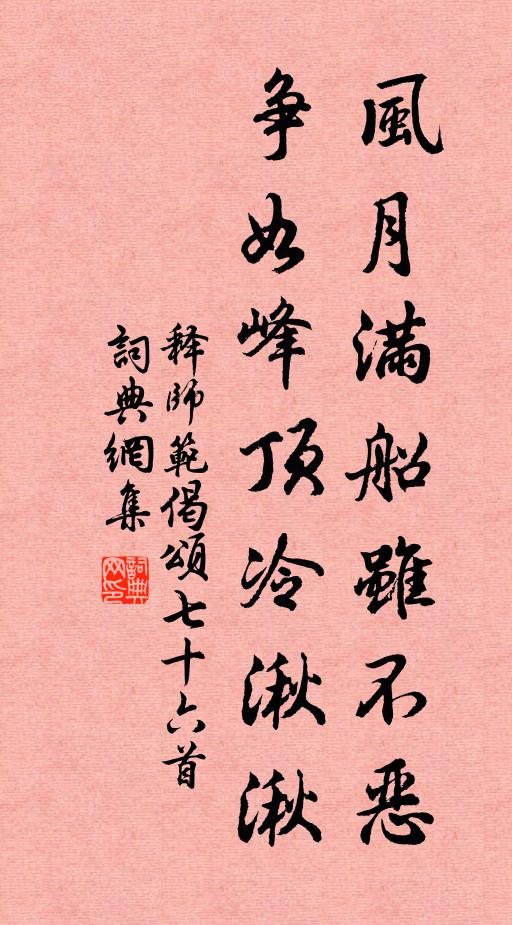 風月滿船雖不惡
争如峰頂冷湫湫
释師範偈頌七十六首
詞典網集
詞典网印